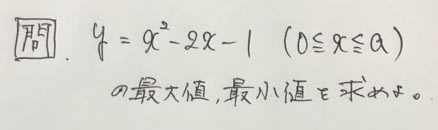 問. y = x² - 2x - 1 (0 ≦ x ≦ a)
の最大値, 最小値を求めよ。